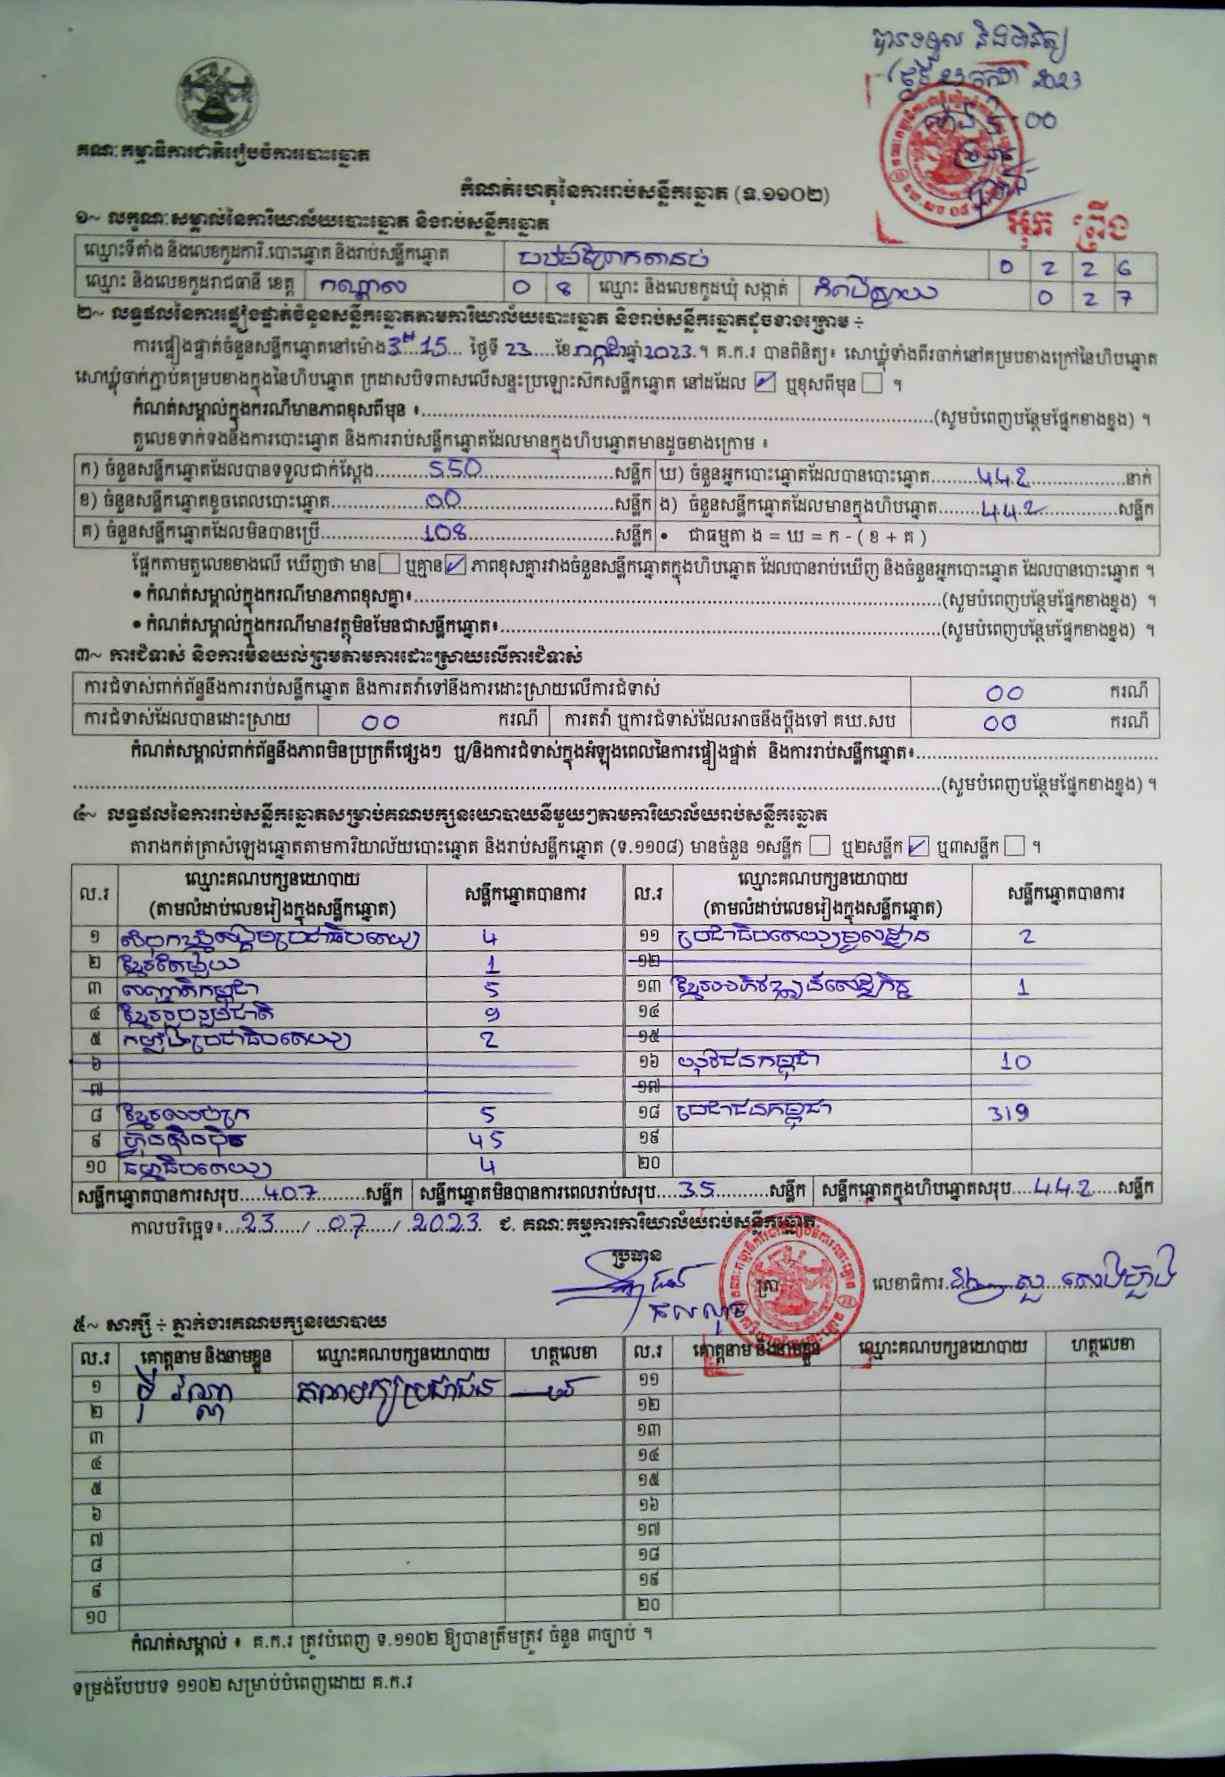 បានទទួល និងពិនិត្យ
ថ្ងៃទី ២៣ កក្កដា 2023
ម៉ោង 5:00
ប្រធាន
គណៈកម្មាធិការជាតិរៀបចំការបោះឆ្នោត
កំណត់ហេតុនៃការរាប់សន្លឹកឆ្នោត (ទ.១១០២)
១~ លក្ខណៈសម្គាល់នៃការិយាល័យបោះឆ្នោត និងរាប់សន្លឹកឆ្នោត
ឈ្មោះទីតាំង និងលេខកូដការិ.បោះឆ្នោត និងរាប់សន្លឹកឆ្នោត 0 2 2 6
ឈ្មោះ និងលេខកូដរាជធានី ខេត្ត កណ្តាល 0 8 ឈ្មោះ និងលេខកូដឃុំ សង្កាត់ កំពង់ស្វាយ 0 2 7
២~ លទ្ធផលនៃការផ្ទៀងផ្ទាត់ចំនួនសន្លឹកឆ្នោតតាមការិយាល័យបោះឆ្នោត និងរាប់សន្លឹកឆ្នោតដូចខាងក្រោម ÷
ការផ្ទៀងផ្ទាត់ចំនួនសន្លឹកឆ្នោតនៅម៉ោង 3 15 ថ្ងៃទី 23 ខែ កក្កដា ឆ្នាំ 2023 ។ គ.ក.រ បានពិនិត្យ៖ សោឃ្លុំទាំងពីរចាក់នៅគម្របខាងក្រៅនៃហិបឆ្នោត
សោឃ្លុំចាក់ភ្ជាប់គម្របខាងក្នុងនៃហិបឆ្នោត ក្រដាសបិទពាសលើសន្ទះប្រឡោះស៊កសន្លឹកឆ្នោត នៅដដែល ☑ ឬខុសពីមុន ☐ ។
កំណត់សម្គាល់ក្នុងករណីមានភាពខុសពីមុន ៖ (សូមបំពេញបន្ថែមផ្នែកខាងខ្នង) ។
តួលេខទាក់ទងនឹងការបោះឆ្នោត និងការរាប់សន្លឹកឆ្នោតដែលមានក្នុងហិបឆ្នោតមានដូចខាងក្រោម ៖
ក) ចំនួនសន្លឹកឆ្នោតដែលបានទទួលជាក់ស្តែង 550 សន្លឹក ឃ) ចំនួនអ្នកបោះឆ្នោតដែលបានបោះឆ្នោត 442 នាក់
ខ) ចំនួនសន្លឹកឆ្នោតខូចពេលបោះឆ្នោត 00 សន្លឹក ង) ចំនួនសន្លឹកឆ្នោតដែលមានក្នុងហិបឆ្នោត 442 សន្លឹក
គ) ចំនួនសន្លឹកឆ្នោតដែលមិនបានប្រើ 108 សន្លឹក • ជាធម្មតា ង = ឃ = ក - ( ខ + គ )
ផ្អែកតាមតួលេខខាងលើ ឃើញថា មាន ☐ ឬគ្មាន ☑ ភាពខុសគ្នារវាងចំនួនសន្លឹកឆ្នោតក្នុងហិបឆ្នោត ដែលបានរាប់ឃើញ និងចំនួនអ្នកបោះឆ្នោត ដែលបានបោះឆ្នោត ។
• កំណត់សម្គាល់ក្នុងករណីមានភាពខុសគ្នា៖ (សូមបំពេញបន្ថែមផ្នែកខាងខ្នង) ។
• កំណត់សម្គាល់ក្នុងករណីមានវត្ថុមិនមែនជាសន្លឹកឆ្នោត៖ (សូមបំពេញបន្ថែមផ្នែកខាងខ្នង) ។
៣~ ការជំទាស់ និងការមិនយល់ព្រមតាមការដោះស្រាយលើការជំទាស់
ការជំទាស់ពាក់ព័ន្ធនឹងការរាប់សន្លឹកឆ្នោត និងការតវ៉ាទៅនឹងការដោះស្រាយលើការជំទាស់ 00 ករណី
ការជំទាស់ដែលបានដោះស្រាយ 00 ករណី ការតវ៉ា ឬការជំទាស់ដែលអាចនឹងប្តឹងទៅ គឃ.សប 00 ករណី
កំណត់សម្គាល់ពាក់ព័ន្ធនឹងភាពមិនប្រក្រតីផ្សេងៗ ឬ/និងការជំទាស់ក្នុងអំឡុងពេលនៃការផ្ទៀងផ្ទាត់ និងការរាប់សន្លឹកឆ្នោត៖
(សូមបំពេញបន្ថែមផ្នែកខាងខ្នង) ។
៤~ លទ្ធផលនៃការរាប់សន្លឹកឆ្នោតសម្រាប់គណបក្សនយោបាយនីមួយៗតាមការិយាល័យរាប់សន្លឹកឆ្នោត
តារាងកត់ត្រាសំឡេងឆ្នោតតាមការិយាល័យបោះឆ្នោត និងរាប់សន្លឹកឆ្នោត (ទ.១១០៨) មានចំនួន ១សន្លឹក ☐ ឬ២សន្លឹក ☑ ឬ៣សន្លឹក ☐ ។
ល.រ ឈ្មោះគណបក្សនយោបាយ (តាមលំដាប់លេខរៀងក្នុងសន្លឹកឆ្នោត) សន្លឹកឆ្នោតបានការ ល.រ ឈ្មោះគណបក្សនយោបាយ (តាមលំដាប់លេខរៀងក្នុងសន្លឹកឆ្នោត) សន្លឹកឆ្នោតបានការ
១ សំបុកឃ្មុំសង្គមប្រជាធិបតេយ្យ 4 ១១ ប្រជាធិបតេយ្យមូលដ្ឋាន 2
២ ខ្មែរតែមួយ 1 ១២
៣ សញ្ជាតិកម្ពុជា 5 ១៣ ខ្មែរអភិវឌ្ឍន៍សេដ្ឋកិច្ច 1
៤ ខ្មែររួបរួមជាតិ 9 ១៤
៥ កម្លាំងប្រជាធិបតេយ្យ 2 ១៥
៦ ១៦ យុវជនកម្ពុជា 10
៧ ១៧
៨ ខ្មែរឈប់ក្រ 5 ១៨ ប្រជាជនកម្ពុជា 319
៩ ហ៊្វុនស៊ិនប៉ិច 45 ១៩
១០ ធម្មាធិបតេយ្យ 4 ២០
សន្លឹកឆ្នោតបានការសរុប 407 សន្លឹក សន្លឹកឆ្នោតមិនបានការពេលរាប់សរុប 35 សន្លឹក សន្លឹកឆ្នោតក្នុងហិបឆ្នោតសរុប 442 សន្លឹក
កាលបរិច្ឆេទ៖ 23 / 07 / 2023 ជ. គណៈកម្មការការិយាល័យរាប់សន្លឹកឆ្នោត
ប្រធាន
ត្រា លេខាធិការ
៥~ សាក្សី ÷ ភ្នាក់ងារគណបក្សនយោបាយ
ល.រ គោត្តនាម និងនាមខ្លួន ឈ្មោះគណបក្សនយោបាយ ហត្ថលេខា ល.រ គោត្តនាម និងនាមខ្លួន ឈ្មោះគណបក្សនយោបាយ ហត្ថលេខា
១ ម៉ី វណ្ណា គណបក្សប្រជាជន ១១
២ ១២
៣ ១៣
៤ ១៤
៥ ១៥
៦ ១៦
៧ ១៧
៨ ១៨
៩ ១៩
១០ ២០
កំណត់សម្គាល់ ៖ គ.ក.រ ត្រូវបំពេញ ទ.១១០២ ឱ្យបានត្រឹមត្រូវ ចំនួន ៣ច្បាប់ ។
ទម្រង់បែបបទ ១១០២ សម្រាប់បំពេញដោយ គ.ក.រ